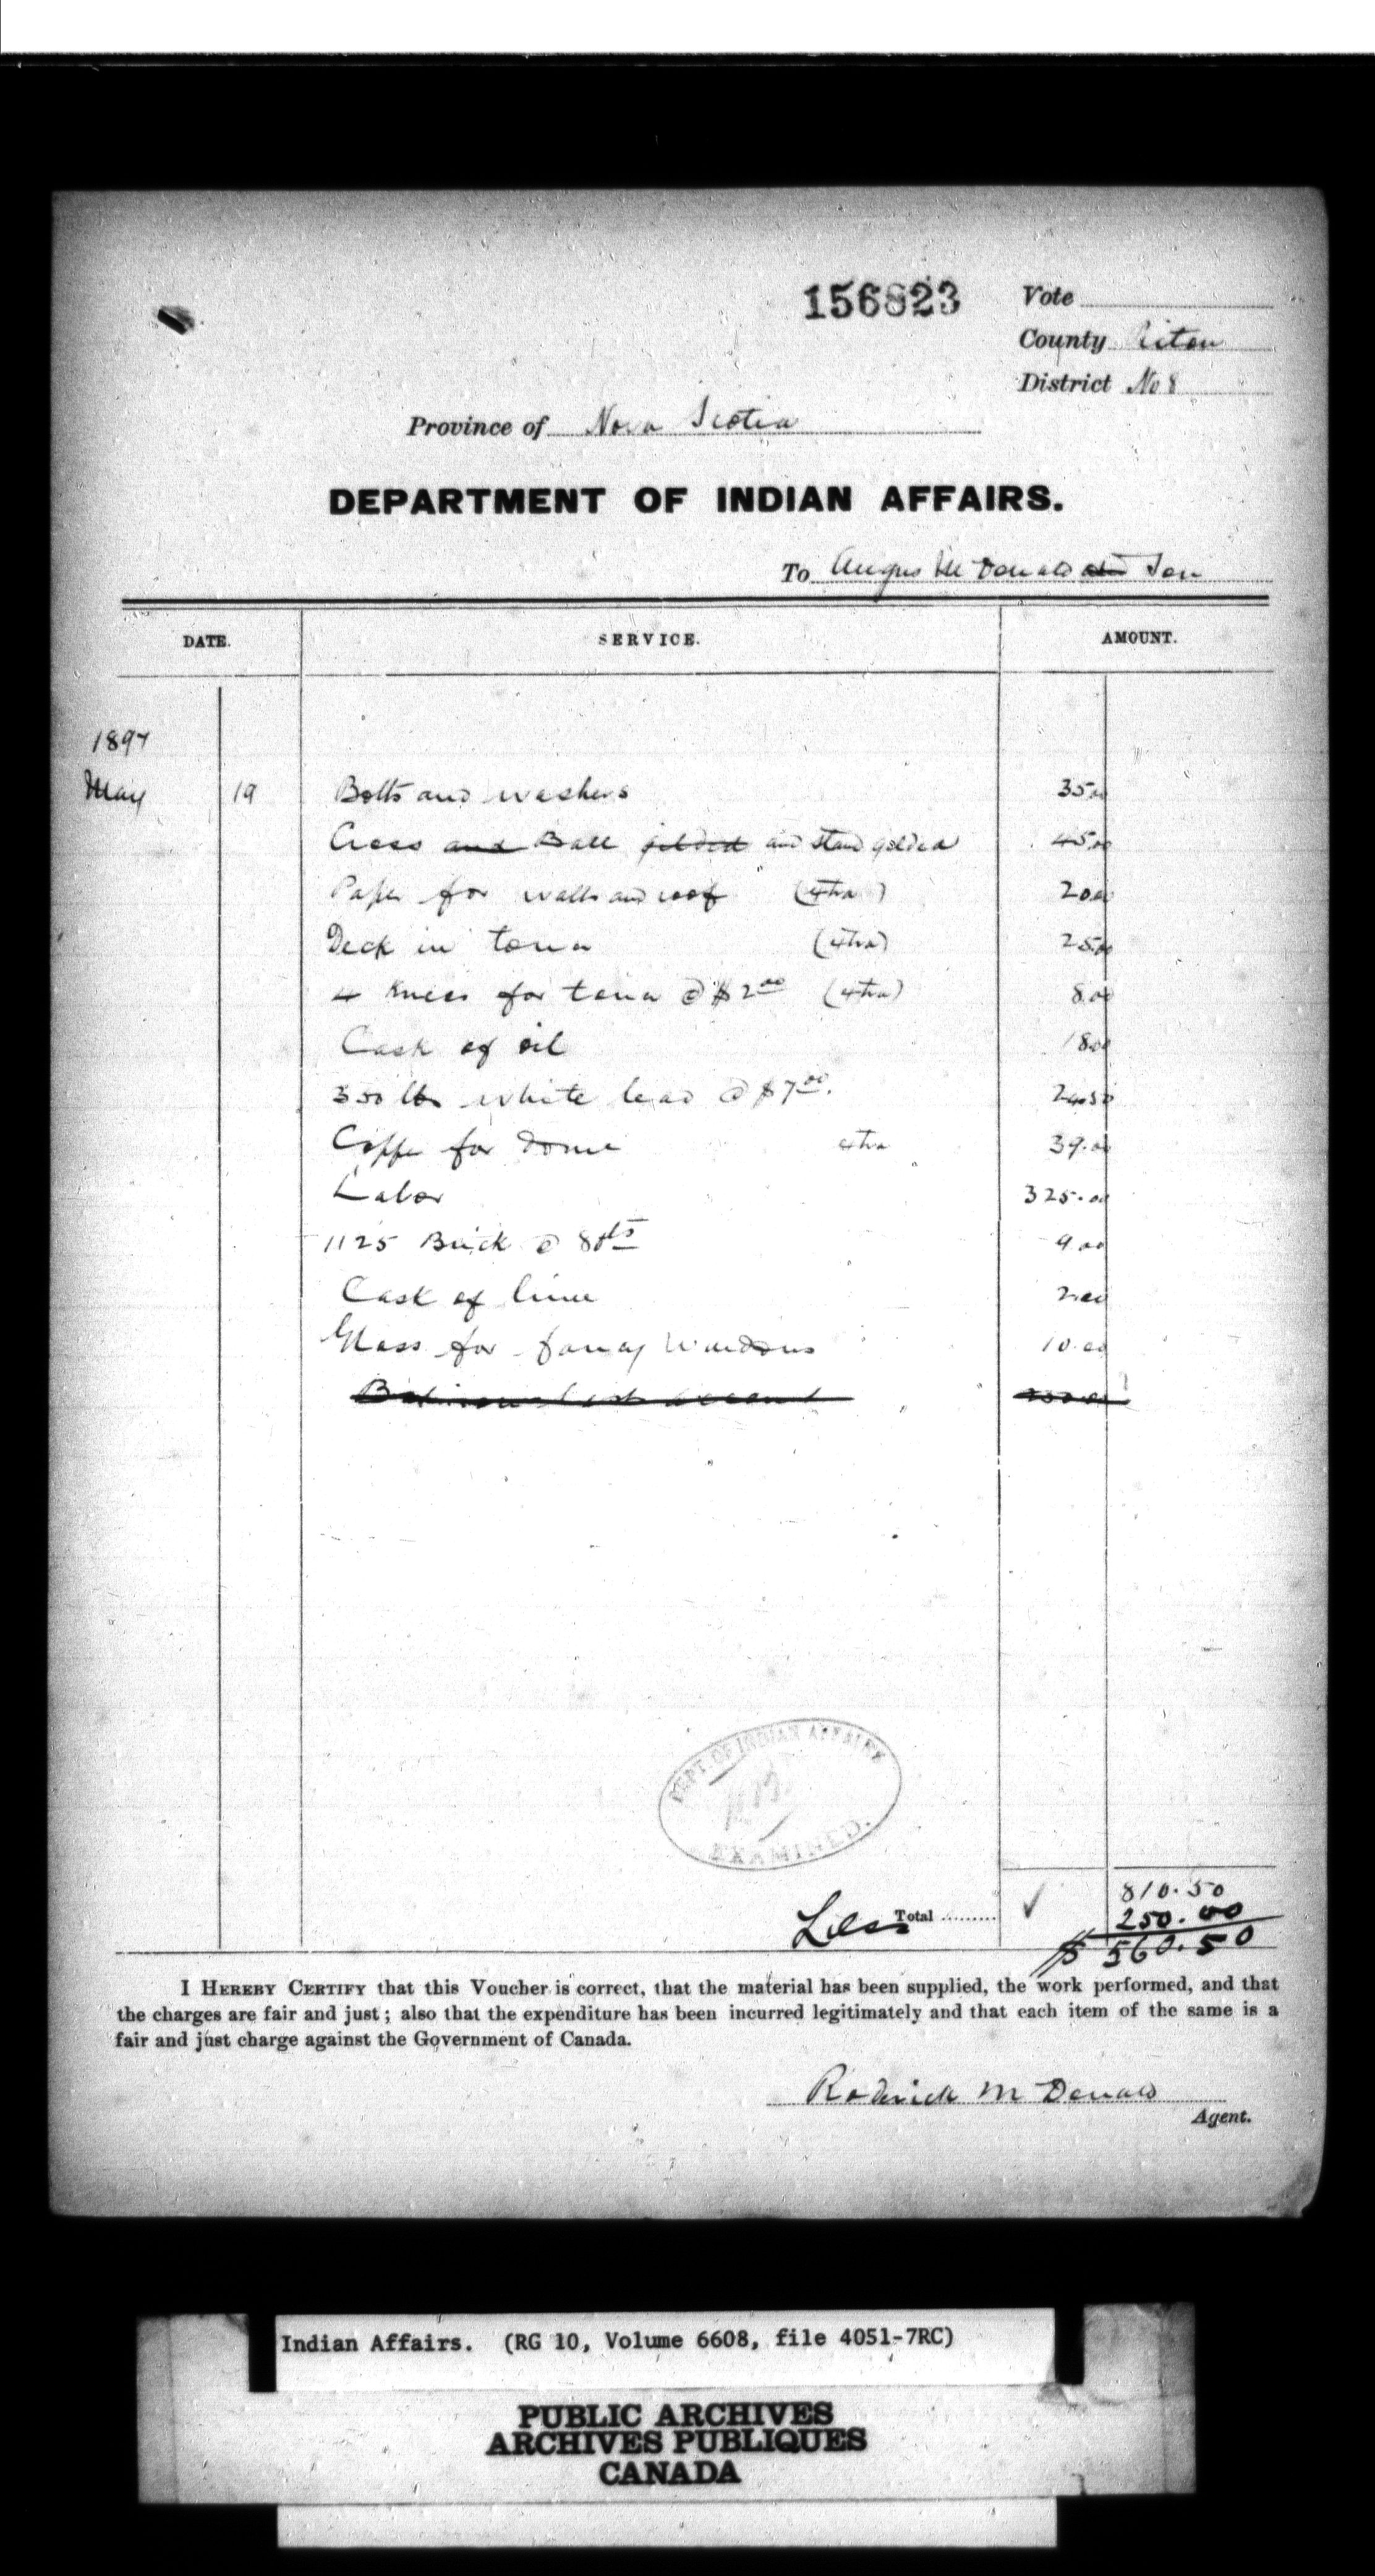 156823
Vote
County Pictou
District No 8
Province of Nova Scotia
DEPARTMENT OF INDIAN AFFAIRS.
To Angus McDonald and Son
DATE. SERVICE. AMOUNT.
1897
May 19 Bolts and washers 35.00
Cross and Ball gilded and stand gilded 45.00
Paper for walls and roof (extra) 20.00
Deck in tower (extra) 25.00
4 Knees for tower @ $2.00 (extra) 8.00
Cask of oil 18.00
350 lbs white lead @ $7.00. 24.50
Copper for Dome extra 39.00
Labor 325.00
1125 Brick @ 80cts 9.00
Cask of lime 2.00
Glass for fancy Windows 10.00
account
DEPT. OF INDIAN AFFAIRS
EXAMINED.
810.50
Less Total ......... 250.00
$ 560.50
I HEREBY CERTIFY that this Voucher is correct, that the material has been supplied, the work performed, and that
the charges are fair and just; also that the expenditure has been incurred legitimately and that each item of the same is a
fair and just charge against the Government of Canada.
Roderick McDonald
Agent.
Indian Affairs. (RG 10, Volume 6608, file 4051-7RC)
PUBLIC ARCHIVES
ARCHIVES PUBLIQUES
CANADA